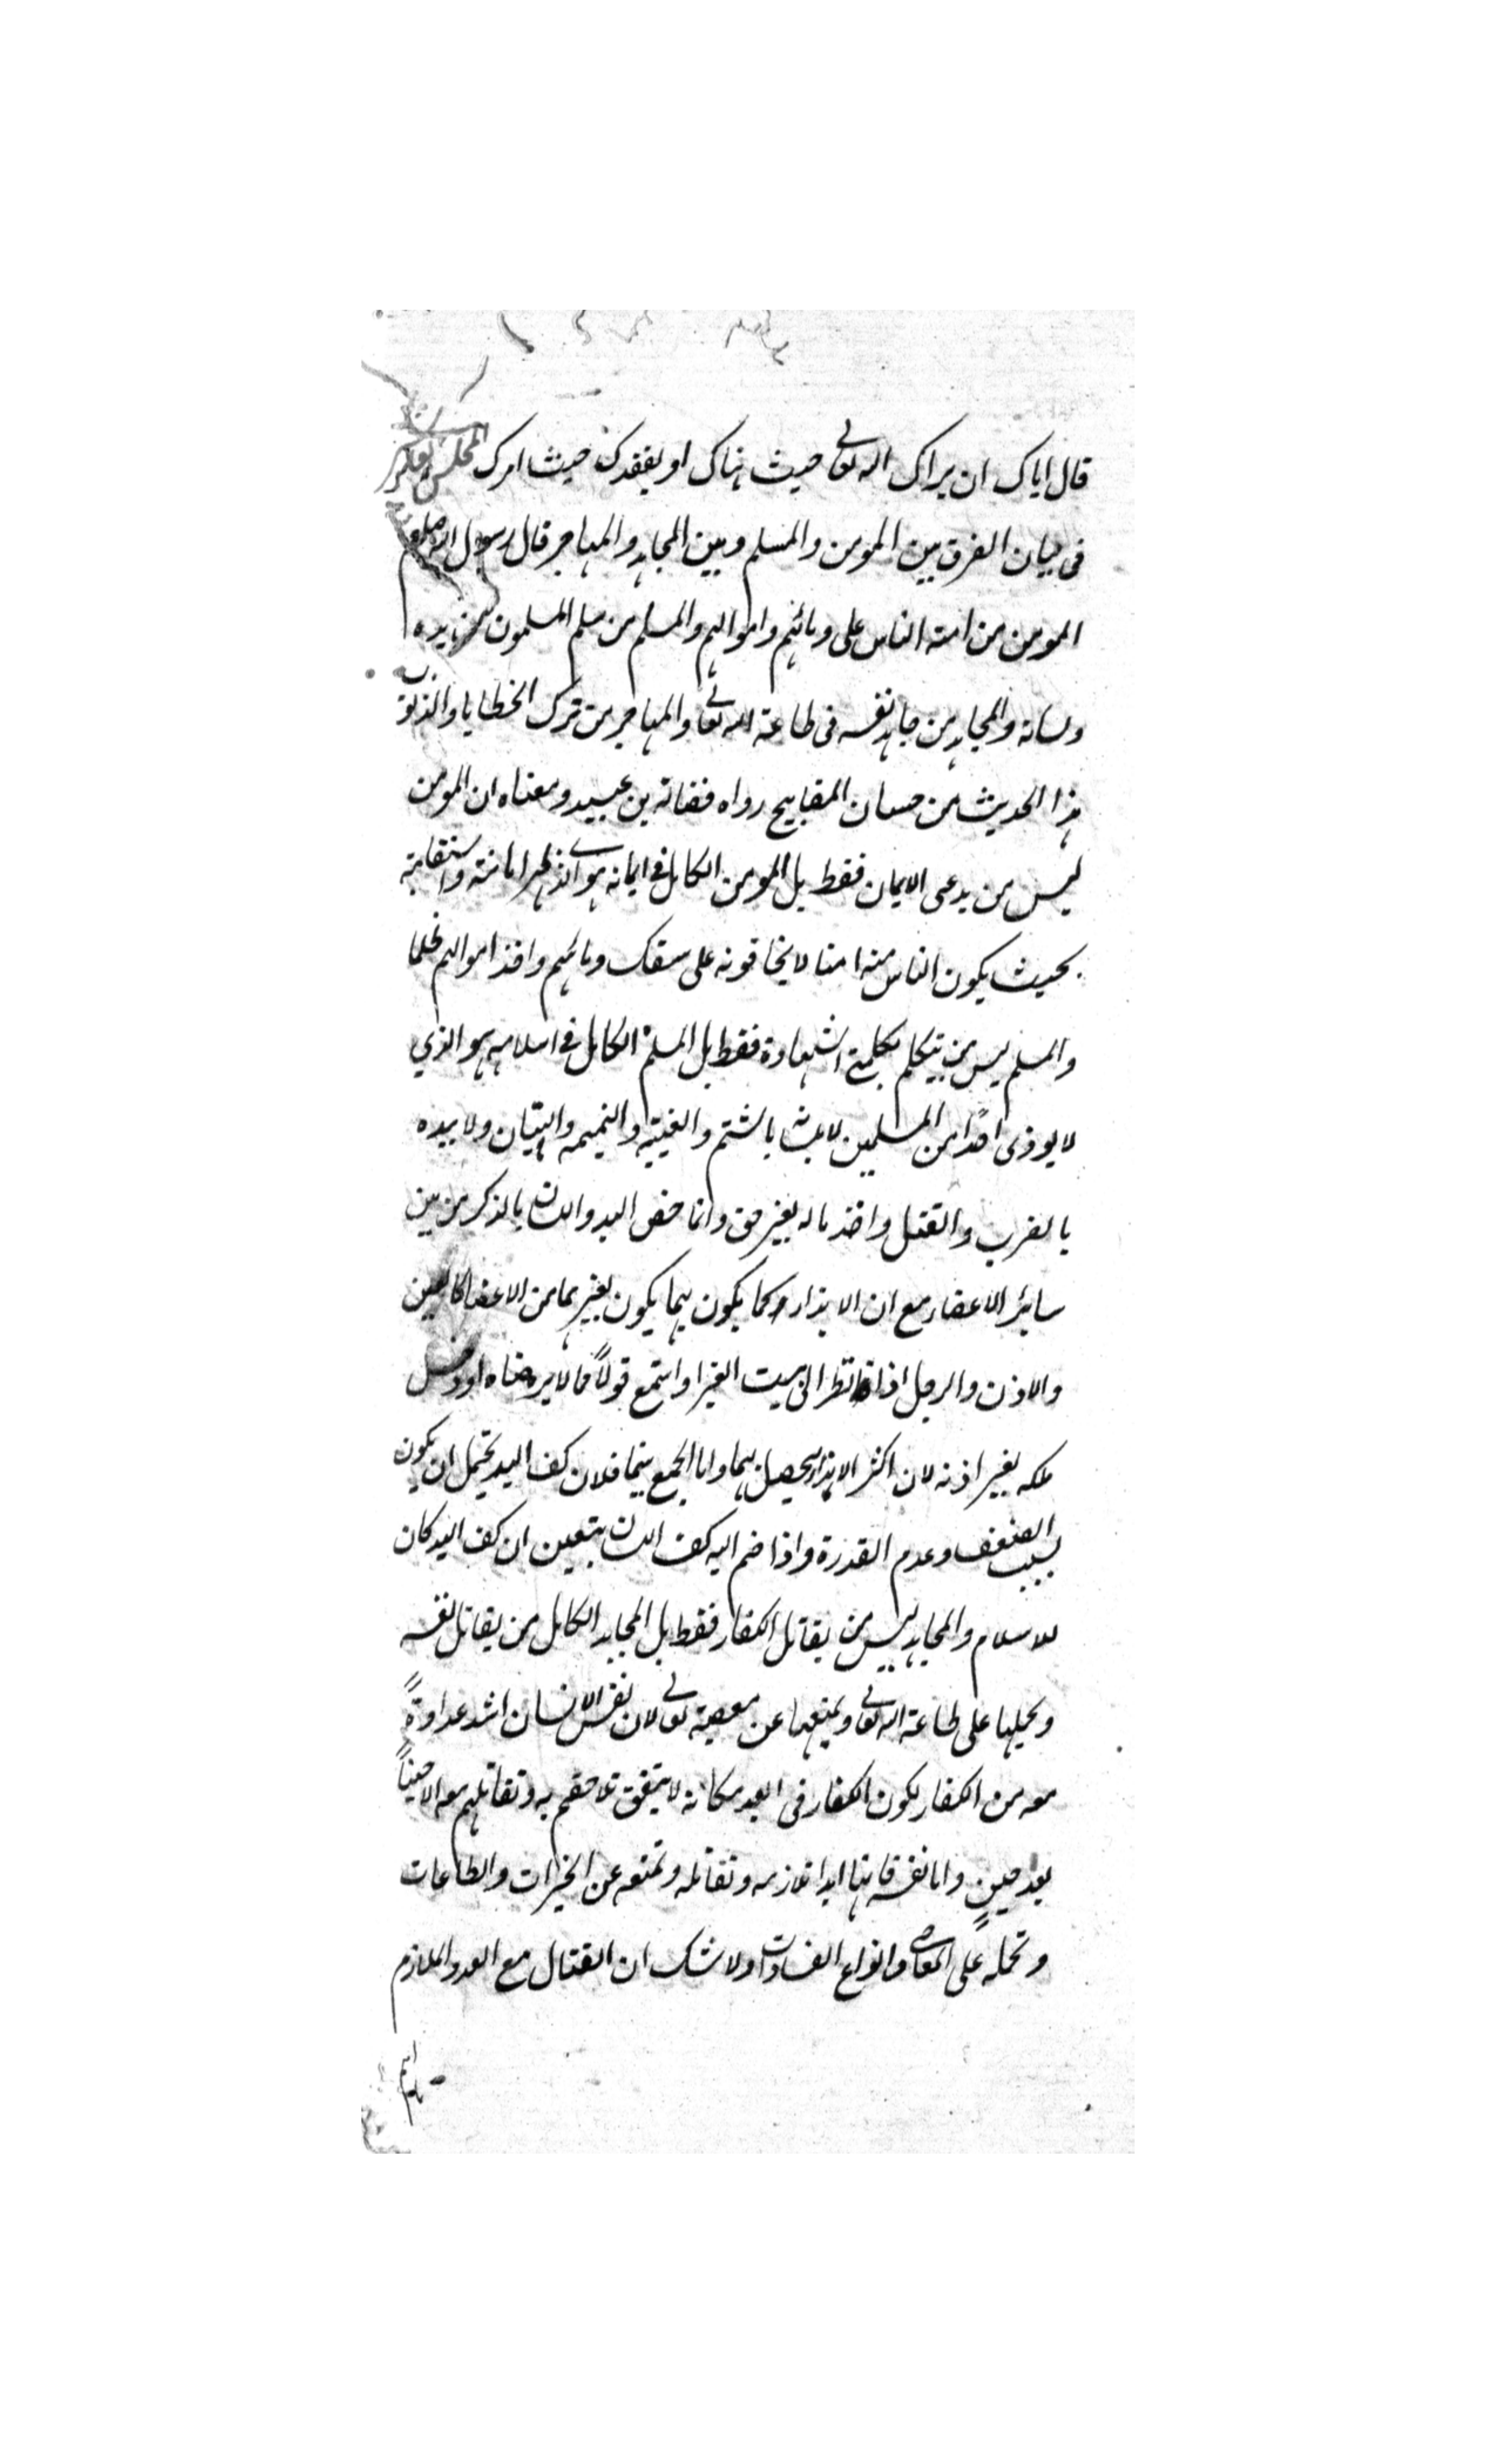 قال اياك ان يراك الله تعالى حيث نهاك او يفقدك حيث امرك المجلس
فى بيان الفرق بين المومن والمسلم وبين المجاهد والمهاجر قال رسول الله صلعم
المومن من امنه الناس على دمائهم واموالهم والمسلم من سلم المسلمون من يده
ولسانه والمجاهد من جاهد نفسه فى طاعة الله تعالى والمهاجر من ترك الخطايا والذنوب
هذا الحديث من حسان المصابيح رواه فضالة بن عبيد ومعناه ان المومن
ليس من يدعى الايمان فقط بل المومن الكامل فى ايمانه هو الذى ظهر امانته واستقامته
بحيث يكون الناس منه امنا لا يخافونه على سفك دمائهم واخذ اموالهم ظلما
والمسلم ليس من يتكلم بكلمتى الشهادة فقط بل المسلم الكامل فى اسلامه هو الذي
لا يوذى احدًا من المسلمين لا بلسانه بالشتم والغيبة والنميمه والبهتان ولا بيده
بالضرب والقتل واخذ ماله بغير حق وانما خص اليد واللسان بالذكر من بين
سائر الاعضاء مع ان الايذاء كما يكون بهما يكون بغيرهما من الاعضا كالعين
والاذن والرجل اذا نظر الى بيت الغير او استمع قولًا مما لا يرضاه او دخل
ملكه بغير اذنه لان اكثر الايذاء يحصل بهما واما الجمع بينهما فلان كف اليد يحتمل ان يكون
بسبب الضعف وعدم القدرة واذا ضم اليه كف اللسان يتعين ان كف اليد كان
للاسلام والمجاهد ليس من يقاتل الكفار فقط بل المجاهد الكامل من يقاتل نفسه
ويحملها على طاعة الله تعالى ويمنعها عن معصية تعالى لان نفس الانسان اشد عداوةً
معه من الكفار لكون الكفار فى ابعد مكانه لا يتفق تلاحقهم به وتقاتلهم معه الا حينًا
بعد حينٍ واما نفسه فانها ابدا تلازمه وتقاتله وتمنعه عن الخيرات والطاعات
وتحمله على المعاصى وانواع الفسادات ولا شك ان القتال مع العدو الملازم
اهم